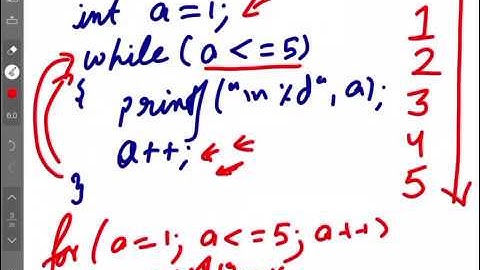 int a=1;
while (a<=5)
{ printf("\n %d", a);
a++;
}
for (a=1; a<=5; a++)
1
2
3
4
5
6.0